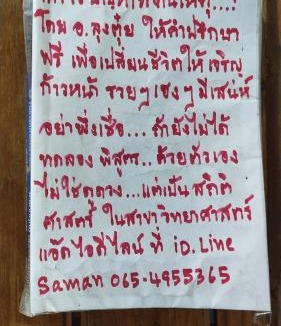 โดย อ. ลุงตุ๋ย ให้คำปรึกษา
ฟรี เพื่อเปลี่ยนชีวิตให้ เจริญ
ก้าวหน้า รวยๆ เฮงๆ มีเสน่ห์
อย่าพึ่งเชื่อ... ถ้ายังไม่ได้
ทดลอง พิสูตร.. ด้วยตัวเอง
ไม่ใช่ดูดวง... แต่เป็น สถิติ
ศาสตร์ ในสาขาวิทยาศาสตร์
แอ๊ดไอดีไลน์ ที่ iD.Line
Saman 065-4955365